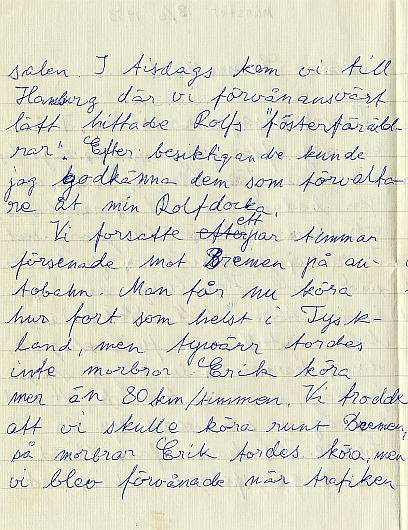 salen. I tisdags kom vi till
Hamburg där vi förvånansvärt
lätt hittade Rolfs "fösterföräld-
rar". Efter besiktigande kunde
jag godkänna dem som förvalta-
re åt min Rolfdocka.
Vi forsatte ett par timmar
försenade mot Bremen på au-
tobahn. Man får nu köra
hur fort som helst i Tysk-
land, men tyvärr tordes
inte morbror Erik köra
mer än 80 km/timmen. Vi trodde
att vi skulle köra runt Bremen,
så morbror Erik tordes köra, men
vi blev förvånade när trafiken